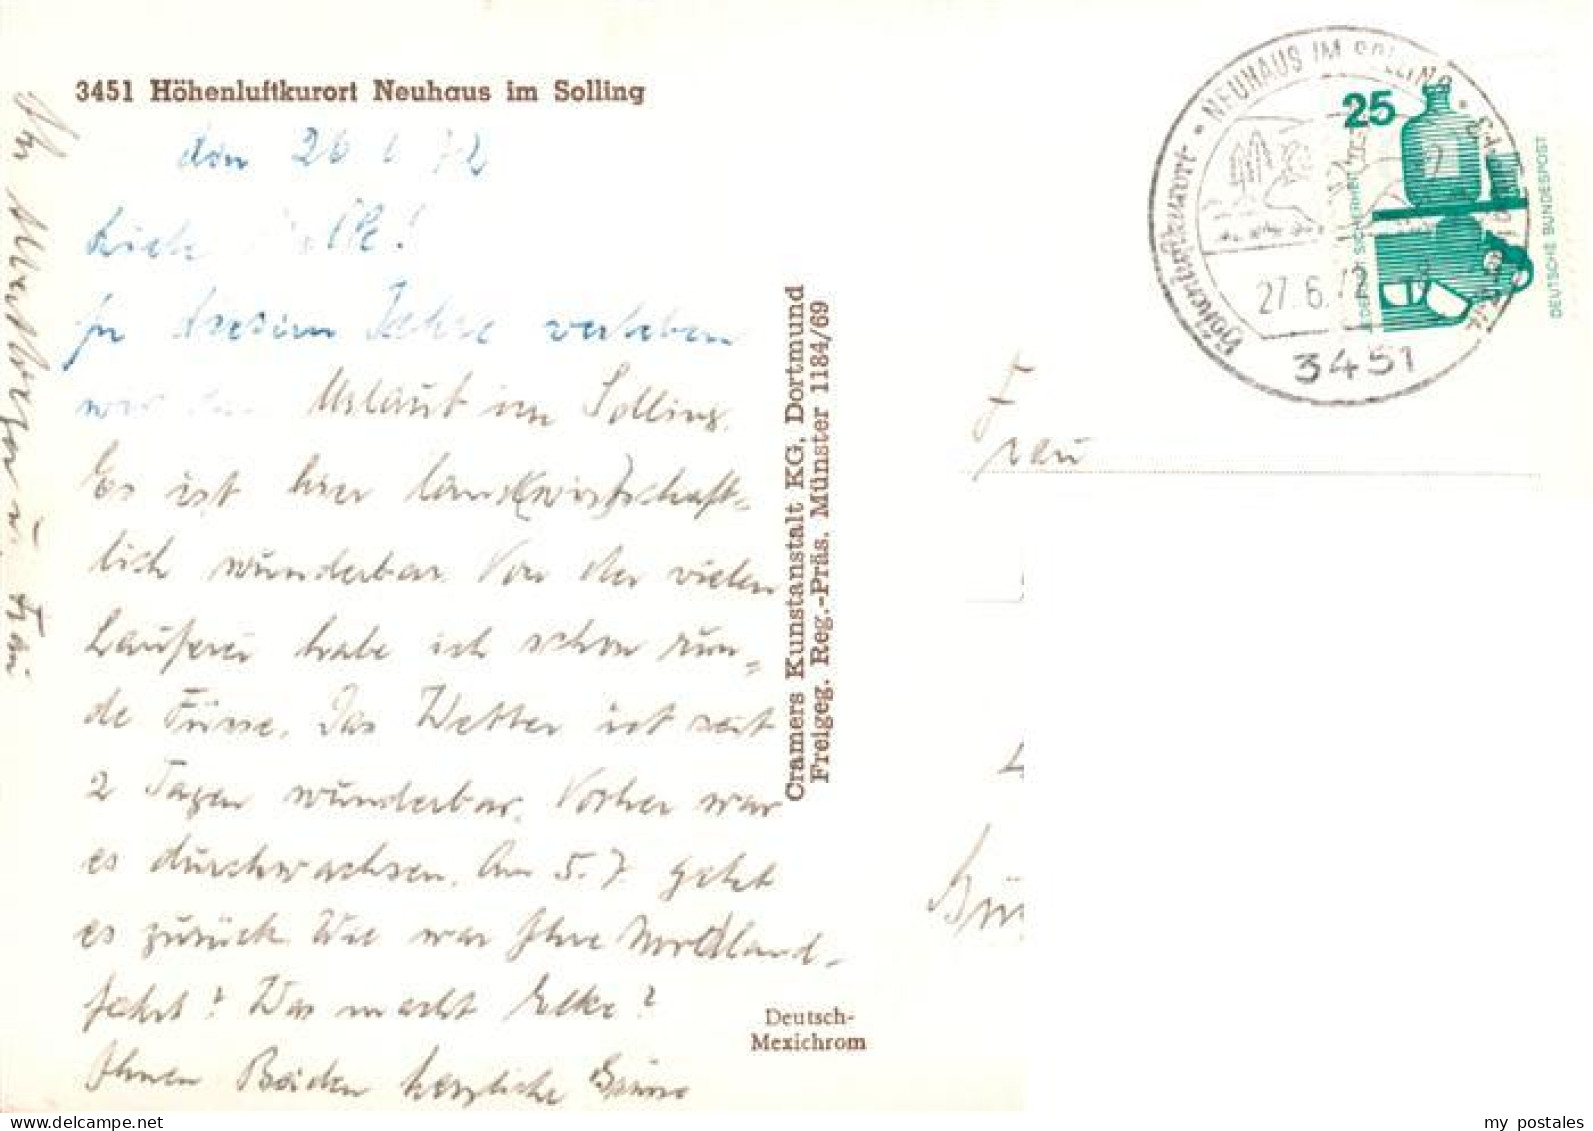 3451 Höhenluftkurort Neuhaus im Solling
den 26 6 72
In diesem Jahre verleben
wir Urlaut im Solling.
Es ist hier land(wirt)schaft=
lich wunderbar. Von der vielen
Lauferei habe ich schon run=
de Füsse. Das Wetter ist seit
2 Tagen wunderbar. Vorher war
es durchwachsen. Am 5.7. geht
es zurück. Wie war Ihre Nordland-
fahrt? Was macht Elke?
Ihnen Beiden herzliche Grüsse
u. Frau
Cramers Kunstanstalt KG, Dortmund
Freigeg. Reg.-Präs. Münster 1184/69
Deutsch-
Mexichrom
Höhenluftkurort • NEUHAUS IM SOLLING •
27.6.72
3451
25
DEUTSCHE BUNDESPOST
Frau
my postales